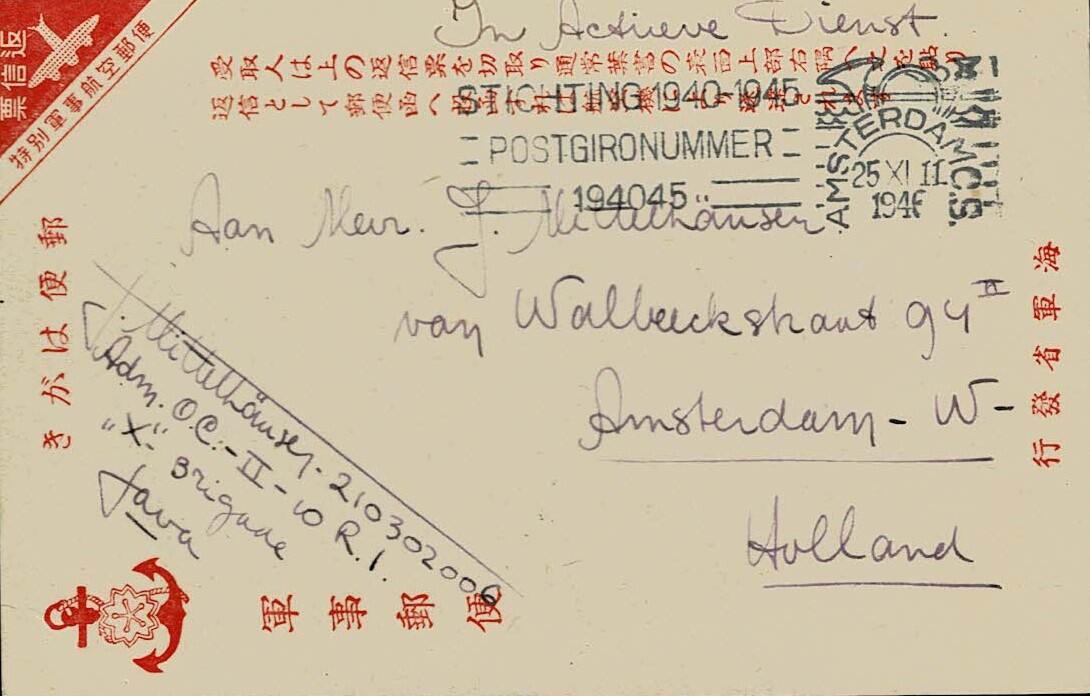 In Actieve Dienst.
返信票
特別軍事航空郵便
受取人は上の返信票を切取り通常葉書の表面上部右隅へ之を貼り
返信として郵便函へ
STICHTING 1940-1945
POSTGIRONUMMER
194045
AMSTERDAM
25 XI 11
1946
Aan Mevr. J. Mittelhäuser
van Walbeeckstraat 94 II
Amsterdam-W-
Holland
J. Mittelhäuser - 210302006
Adm. O.C.-II-10 R.I.
"X"- Brigade
Java
郵便はがき
海軍省發行
軍事郵便